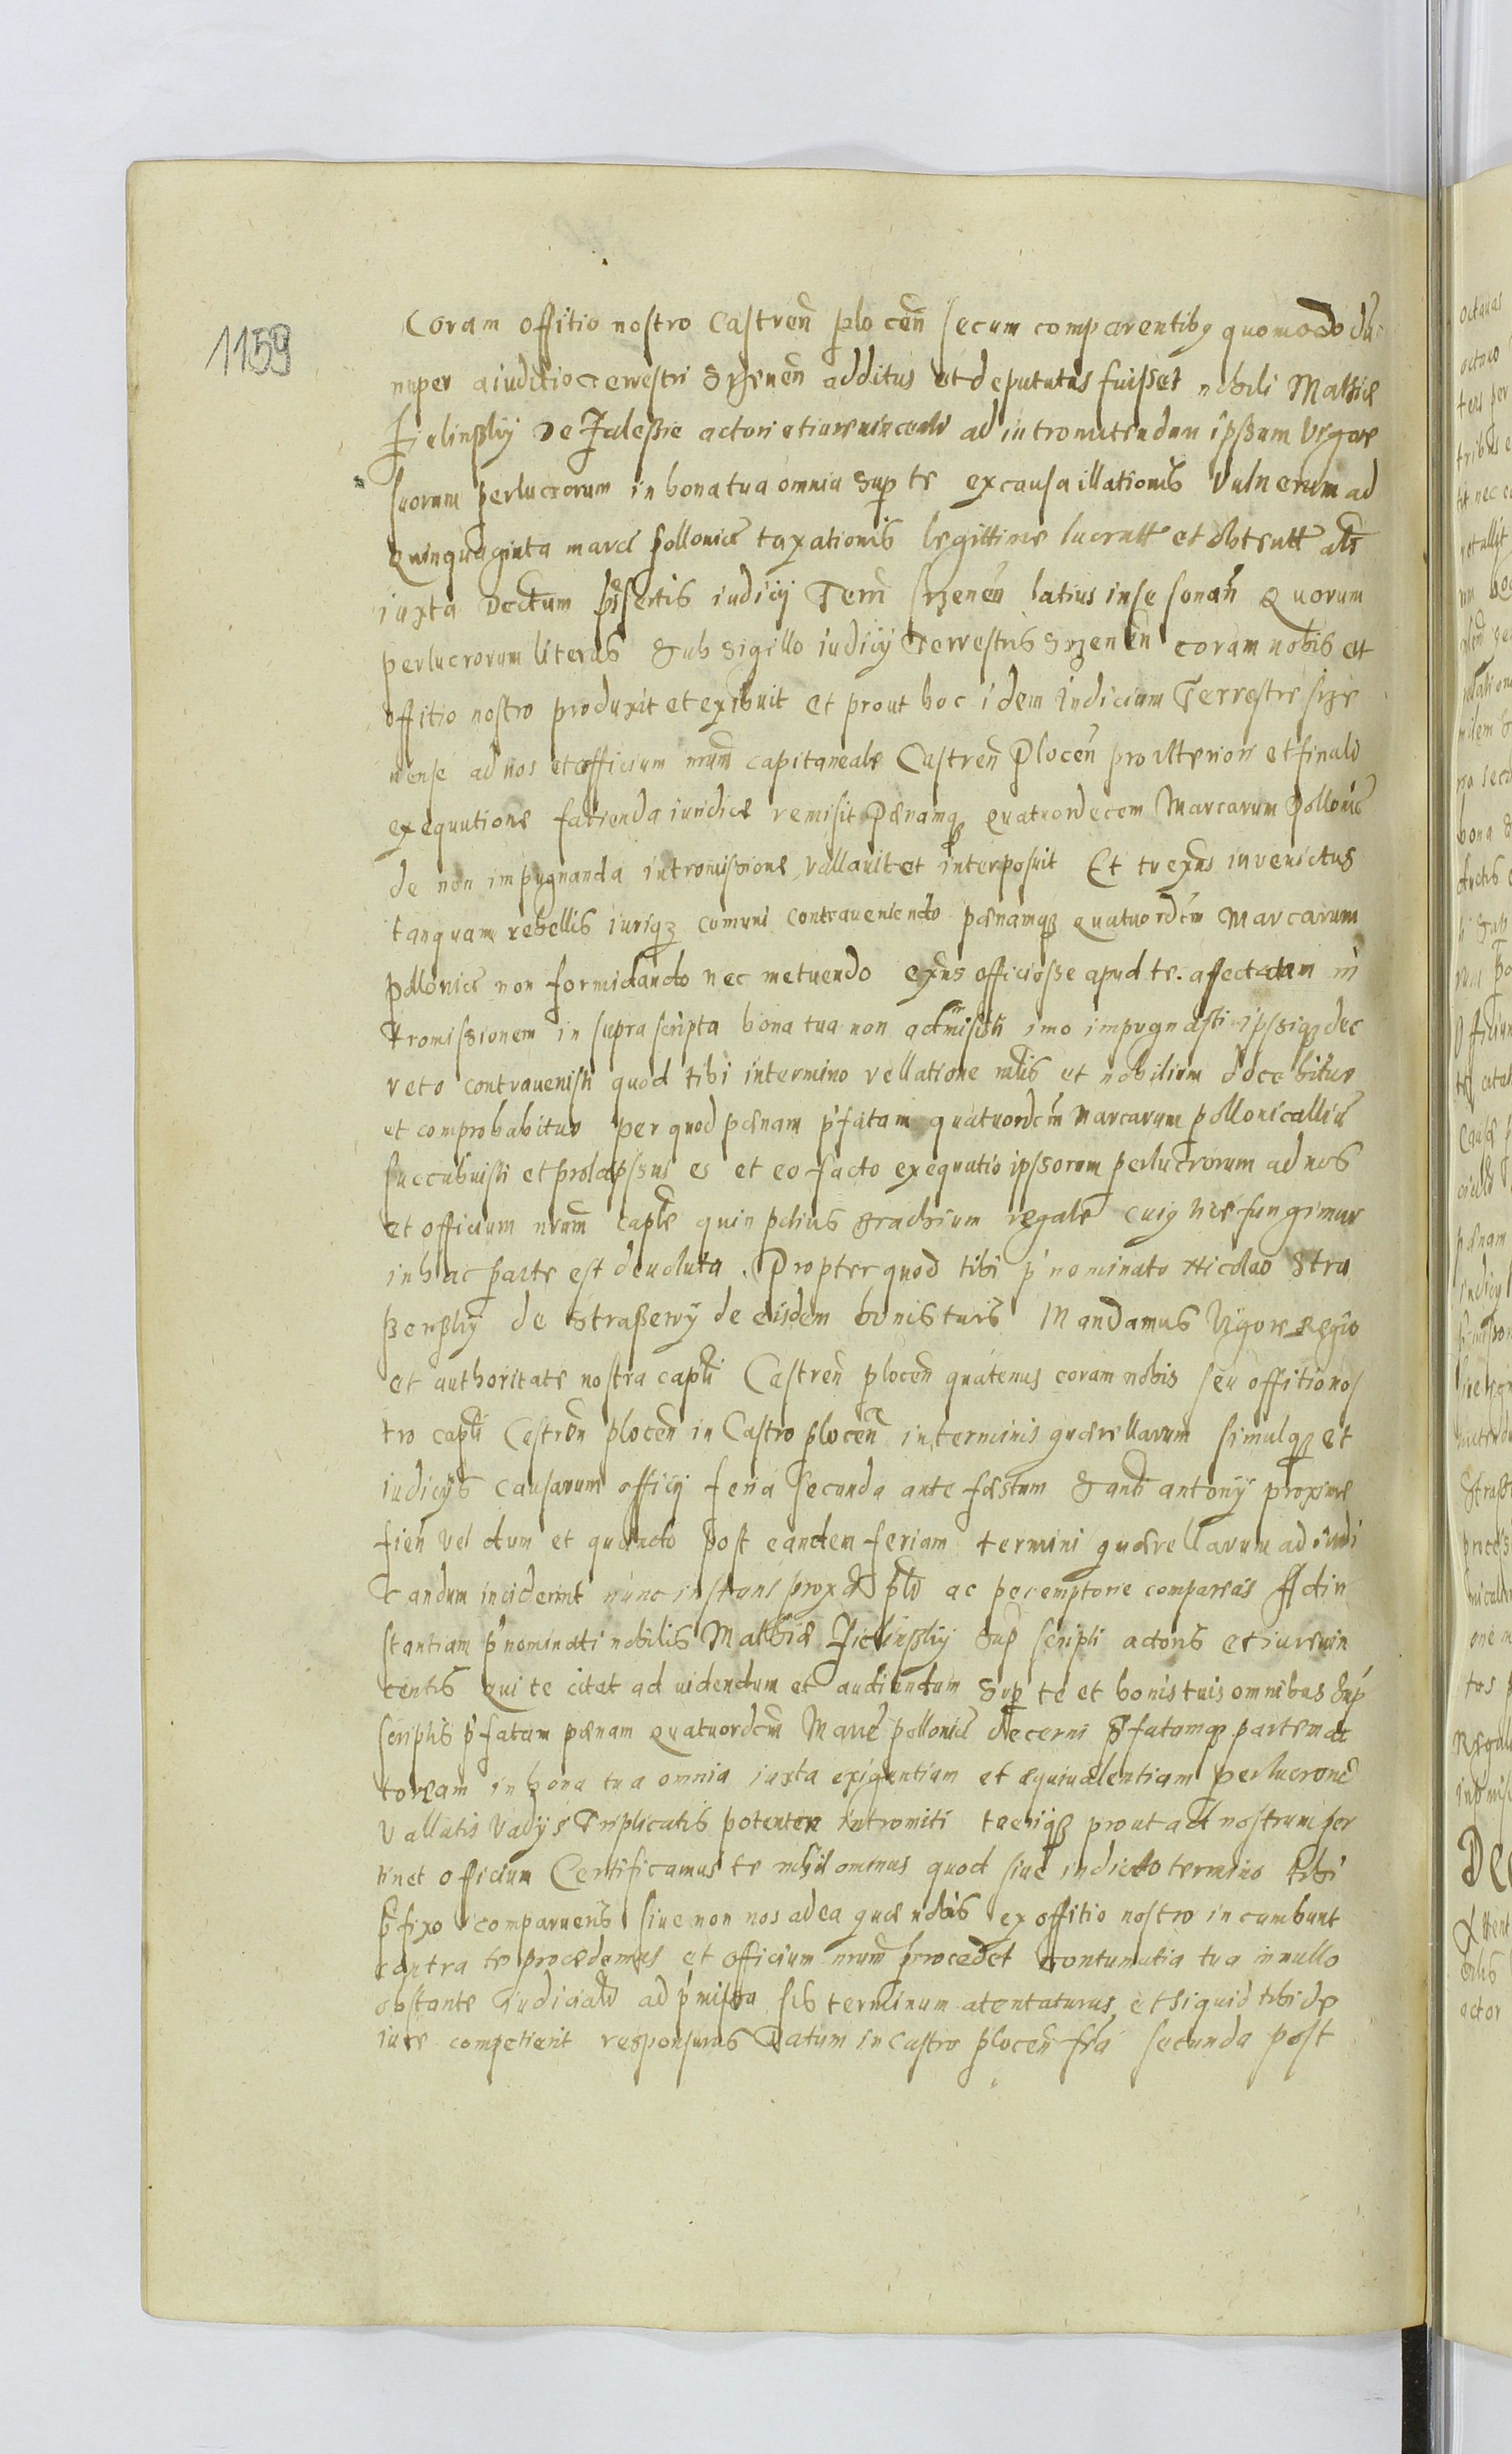 1159
Coram offitio nostro Castren̄ plocen̄ secum comparentibꝫ quomodo du
nuper a iuditio terrestri Srzenen̄ additus et deputatus fuisset nobili Mathiæ
Zielinskÿ de Zalessie actori et iurevincenti ad intromitendum ipsum vigore
suorum perlucrorum in bona tua omnia sup te ex causa illationis vulnerum ad
quinquaginta marcs pollonics taxationis legittime lucratt et obtentt als
iuxta dectum insertis iudicÿ Terri Srzenen̄ latius in se sonan̄ Quorum
perlucrorum literas sub sigillo iudicÿ Terrestris Srzenen̄ coram nobis et
offitio nostro produxit et exibuit et prout hoc idem iudicium Terrestre srze
nense ad nos et officium nrum̄ capitaneale Castren̄ Plocen̄ pro ulteriori et finali
exequutione facienda iuridice remisit pænamqꝫ quatuordecem Marcarum Pollonics
de non impugnanda intromissione vallavit et interposuit Et tu exn̄s invenictus
tanquam rebellis iuriqꝫ comuni contraveniendo pænamqꝫ quatuordcm̄ Marcarum
pollonics non formidando nec metuendo exn̄s officiosse apud te affectatam in
tromissionem in supra scripta bona tua non admisisti imo impugnasti ipssiqꝫ dec
reto contravenisti quod tibi in termino rellatione mlis et nobilium docebitur
et comprobabitur per quod pænam p̄fatam quatuordcm̄ marcarum pollonicallium
succubuisti et prolapssus es et eo facto exequutio ipssorum perlucrorum ad nos
et officium nrum̄ captle quin potius brachium regale cuiꝫ vice fungimur
in hac parte est devoluta. Propter quod tibi p̄nominato Nicolao Stra
szewskÿ de Straszewÿ de eisdem bonis tuis Mandamus vigore Regio
et authoritate nostra captli Castren̄ plocen̄ quatenus coram nobis seu offitio nos
tro captli Castren̄ plocen̄ in Castro plocen̄ in terminis quærellarum simulqꝫ et
iudicÿs causarum officÿ feria secunda ante fæstum Santi antonÿ proxime
fien̄ vel dum et quando post eandem feriam termini quærellarum ad iudi
candum inciderint nunc instans prox ac peremptorie compareas Ad in
stantiam p̄nominati nobilis Mathiæ Zielinskÿ sup scripti actoris et iurevin
centis qui te citat ad videndum et audiendum sup te et bonis tuis omnibus sup
scriptis p̄fatam pænam quatuordcm̄ Marcs pollonics decerni p̄fatamqꝫ partem ac
toream in bona tua omnia iuxta exigentiam et æquivalentiam perlucrorum
vallatis vadÿs triplicatis potenter intromiti tueriqꝫ prout ad nostrum per
tinet officium Certificamus te nihilominus quod sive in dicto termino tibi
p̄fixo comparueris sive non nos ad ea quæ nobis ex offitio nostro incumbunt
contra te procedemus et officium nrum̄ procedet contumatia tua in nullo
obstante Iudicialr ad p̄missa sis terminum atentaturus et si quid tibi de
iure competierit responsurus Datum in Castro plocen̄ fria secunda post